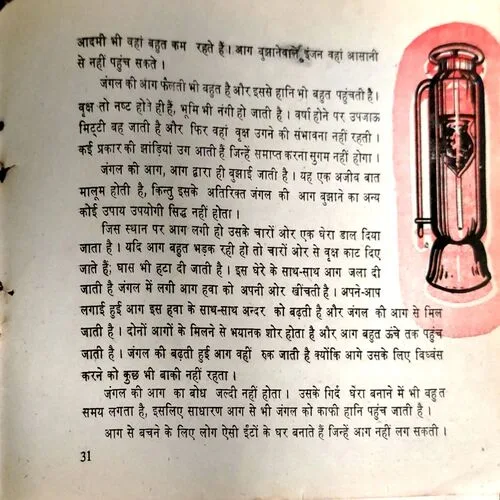 आदमी भी वहां बहुत कम रहते हैं। आग बुझानेवाले इंजन वहां आसानी
से नहीं पहुंच सकते।
जंगल की आग फैलती भी बहुत है और इससे हानि भी बहुत पहुंचती है।
वृक्ष तो नष्ट होते ही हैं, भूमि भी नंगी हो जाती है। वर्षा होने पर उपजाऊ
मिट्टी बह जाती है और फिर वहां वृक्ष उगने की संभावना नहीं रहती।
कई प्रकार की झाड़ियां उग आती हैं जिन्हें समाप्त करना सुगम नहीं होगा।
जंगल की आग, आग द्वारा ही बुझाई जाती है। यह एक अजीब बात
मालूम होती है, किन्तु इसके अतिरिक्त जंगल की आग बुझाने का अन्य
कोई उपाय उपयोगी सिद्ध नहीं होता।
जिस स्थान पर आग लगी हो उसके चारों ओर एक घेरा डाल दिया
जाता है। यदि आग बहुत भड़क रही हो तो चारों ओर से वृक्ष काट दिए
जाते हैं; घास भी हटा दी जाती है। इस घेरे के साथ-साथ आग जला दी
जाती है जंगल में लगी आग हवा को अपनी ओर खींचती है। अपने-आप
लगाई हुई आग इस हवा के साथ-साथ अन्दर को बढ़ती है और जंगल की आग से मिल
जाती है। दोनों आगों के मिलने से भयानक शोर होता है और आग बहुत ऊंचे तक पहुंच
जाती है। जंगल की बढ़ती हुई आग वहीं रुक जाती है क्योंकि आगे उसके लिए विध्वंस
करने को कुछ भी बाकी नहीं रहता।
जंगल की आग का बोध जल्दी नहीं होता। उसके गिर्द घेरा बनाने में भी बहुत
समय लगता है, इसलिए साधारण आग से भी जंगल को काफी हानि पहुंच जाती है।
आग से बचने के लिए लोग ऐसी ईंटों के घर बनाते हैं जिन्हें आग नहीं लग सकती।
31